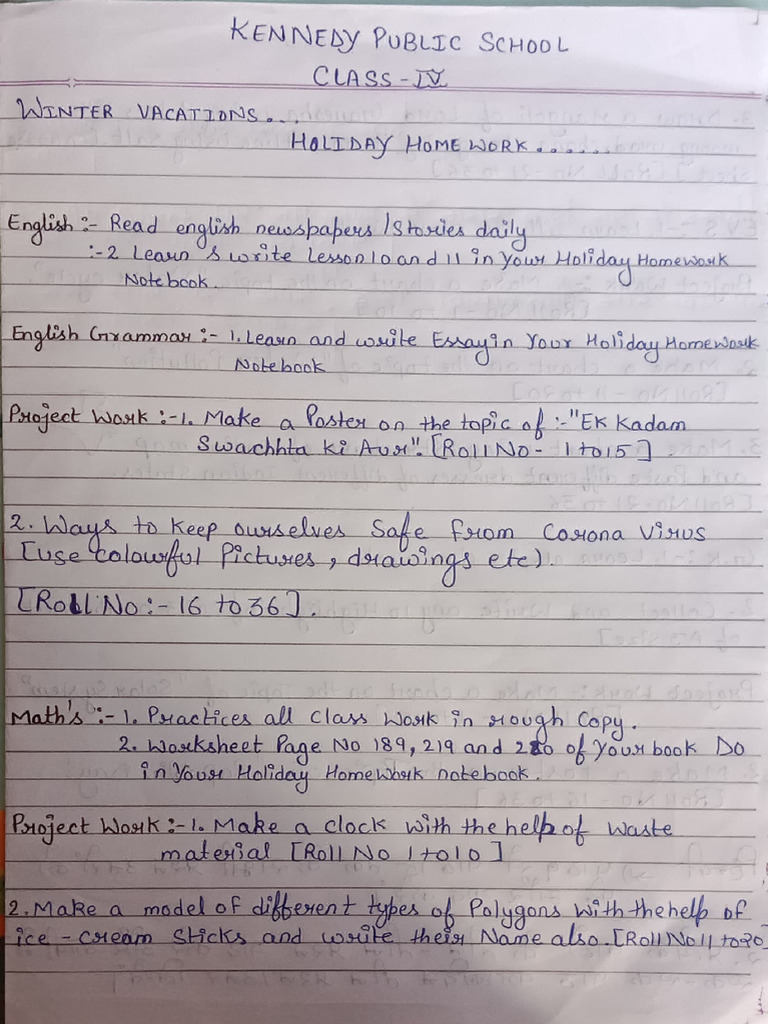 KENNEDY PUBLIC SCHOOL
CLASS - IV
WINTER VACATIONS..
HOLIDAY HOME WORK.......
English :- Read english newspapers / Stories daily
:-2 Learn & write Lesson 10 and 11 in Your Holiday Homework
Notebook.
English Grammar :- 1. Learn and write Essay in Your Holiday HomeWork
Notebook
Project Work :-1. Make a Poster on the topic of :- "Ek Kadam
Swachhta Ki Aur". [Roll No - 1 to 15]
2. Ways to Keep ourselves Safe from Corona Virus
[use colourful Pictures, drawings etc)
[Roll No :- 16 to 36].
Math's :- 1. Practices all Class Work in rough Copy.
2. Worksheet Page No 189, 219 and 220 of Your book Do
in Your Holiday Homework notebook.
Project Work :-1. Make a clock with the help of Waste
material [Roll No 1 to 10]
2. Make a model of different types of Polygons with the help of
ice - cream Sticks and write their Name also. [Roll No 11 to 20